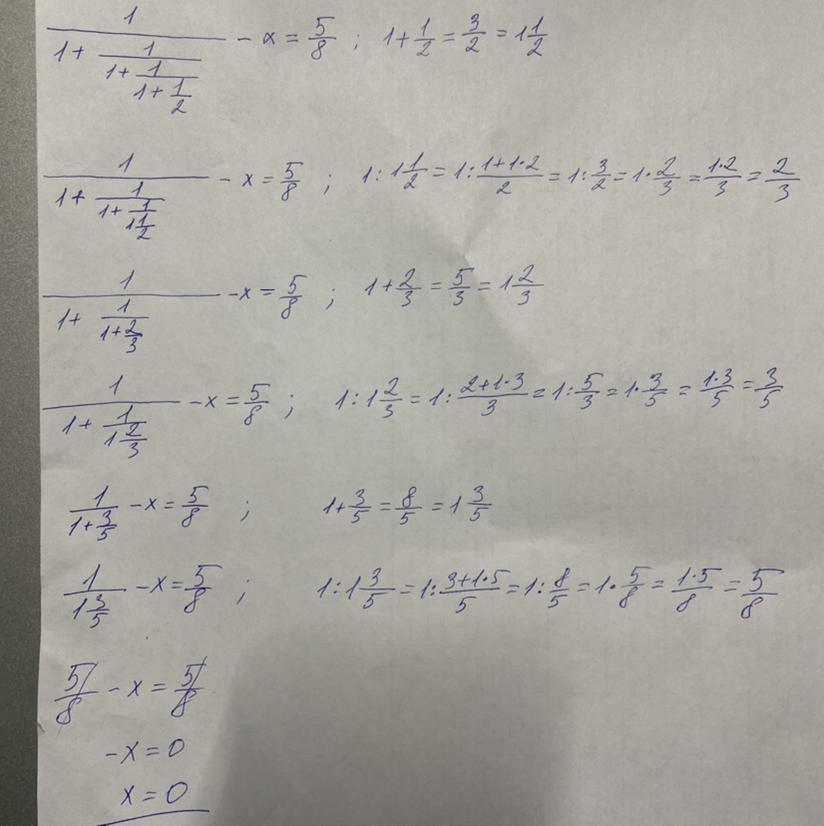 1/(1+1/(1+1/(1+1/2))) - x = 5/8 ; 1+1/2 = 3/2 = 1 1/2
1/(1+1/(1+1/(1 1/2))) - x = 5/8 ; 1:1 1/2 = 1:(1+1·2)/2 = 1:3/2 = 1·2/3 = (1·2)/3 = 2/3
1/(1+1/(1+2/3)) - x = 5/8 ; 1+2/3 = 5/3 = 1 2/3
1/(1+1/(1 2/3)) - x = 5/8 ; 1:1 2/3 = 1:(2+1·3)/3 = 1:5/3 = 1·3/5 = (1·3)/5 = 3/5
1/(1+3/5) - x = 5/8 ; 1+3/5 = 8/5 = 1 3/5
1/(1 3/5) - x = 5/8 ; 1:1 3/5 = 1:(3+1·5)/5 = 1:8/5 = 1·5/8 = (1·5)/8 = 5/8
5/8 - x = 5/8
-x = 0
x = 0